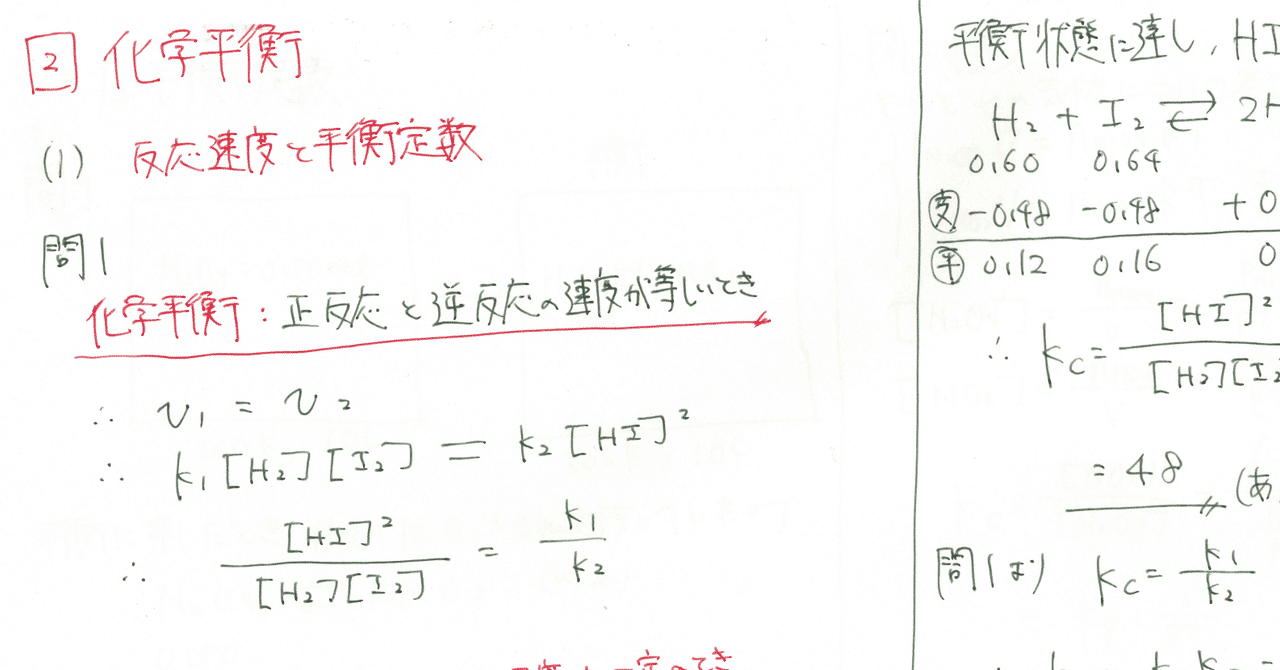 2 化学平衡
(1) 反応速度と平衡定数
問1
化学平衡：正反応と逆反応の速度が等しいとき
∴ v₁ = v₂
∴ k₁[H₂][I₂] = k₂[HI]²
∴ [HI]²/[H₂][I₂] = k₁/k₂
一定のとき
平衡状態に達し, HI
H₂ + I₂ ⇄ 2H
0.60 0.64
変 -0.48 -0.48 +0
平 0.12 0.16 0
∴ Kc = [HI]²/[H₂][I₂
= 48 (あ
問1より Kc = k₁/k₂